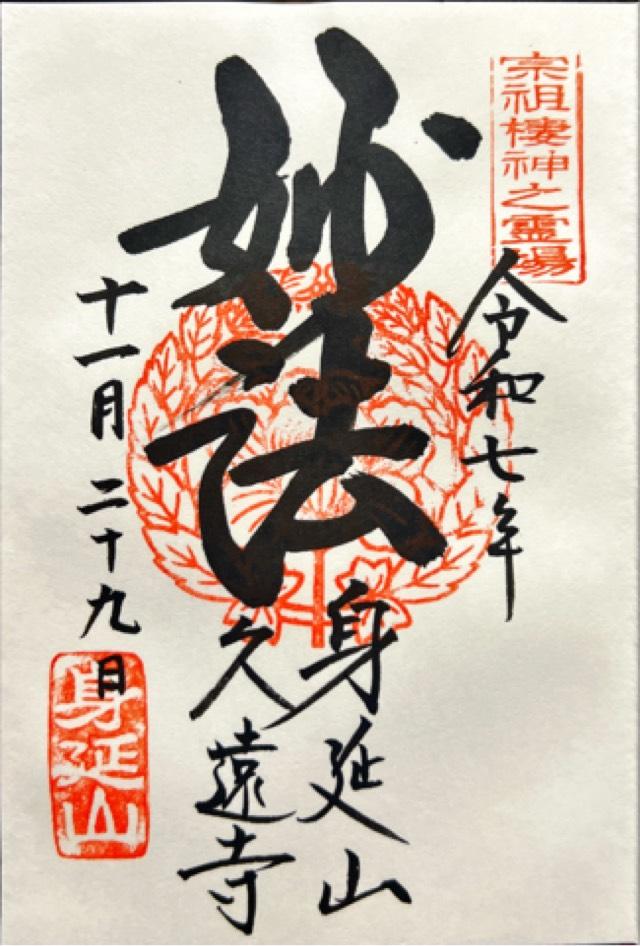 宗祖棲神之霊場
令和七年
妙法
身延山
久遠寺
十一月二十九日
身延山